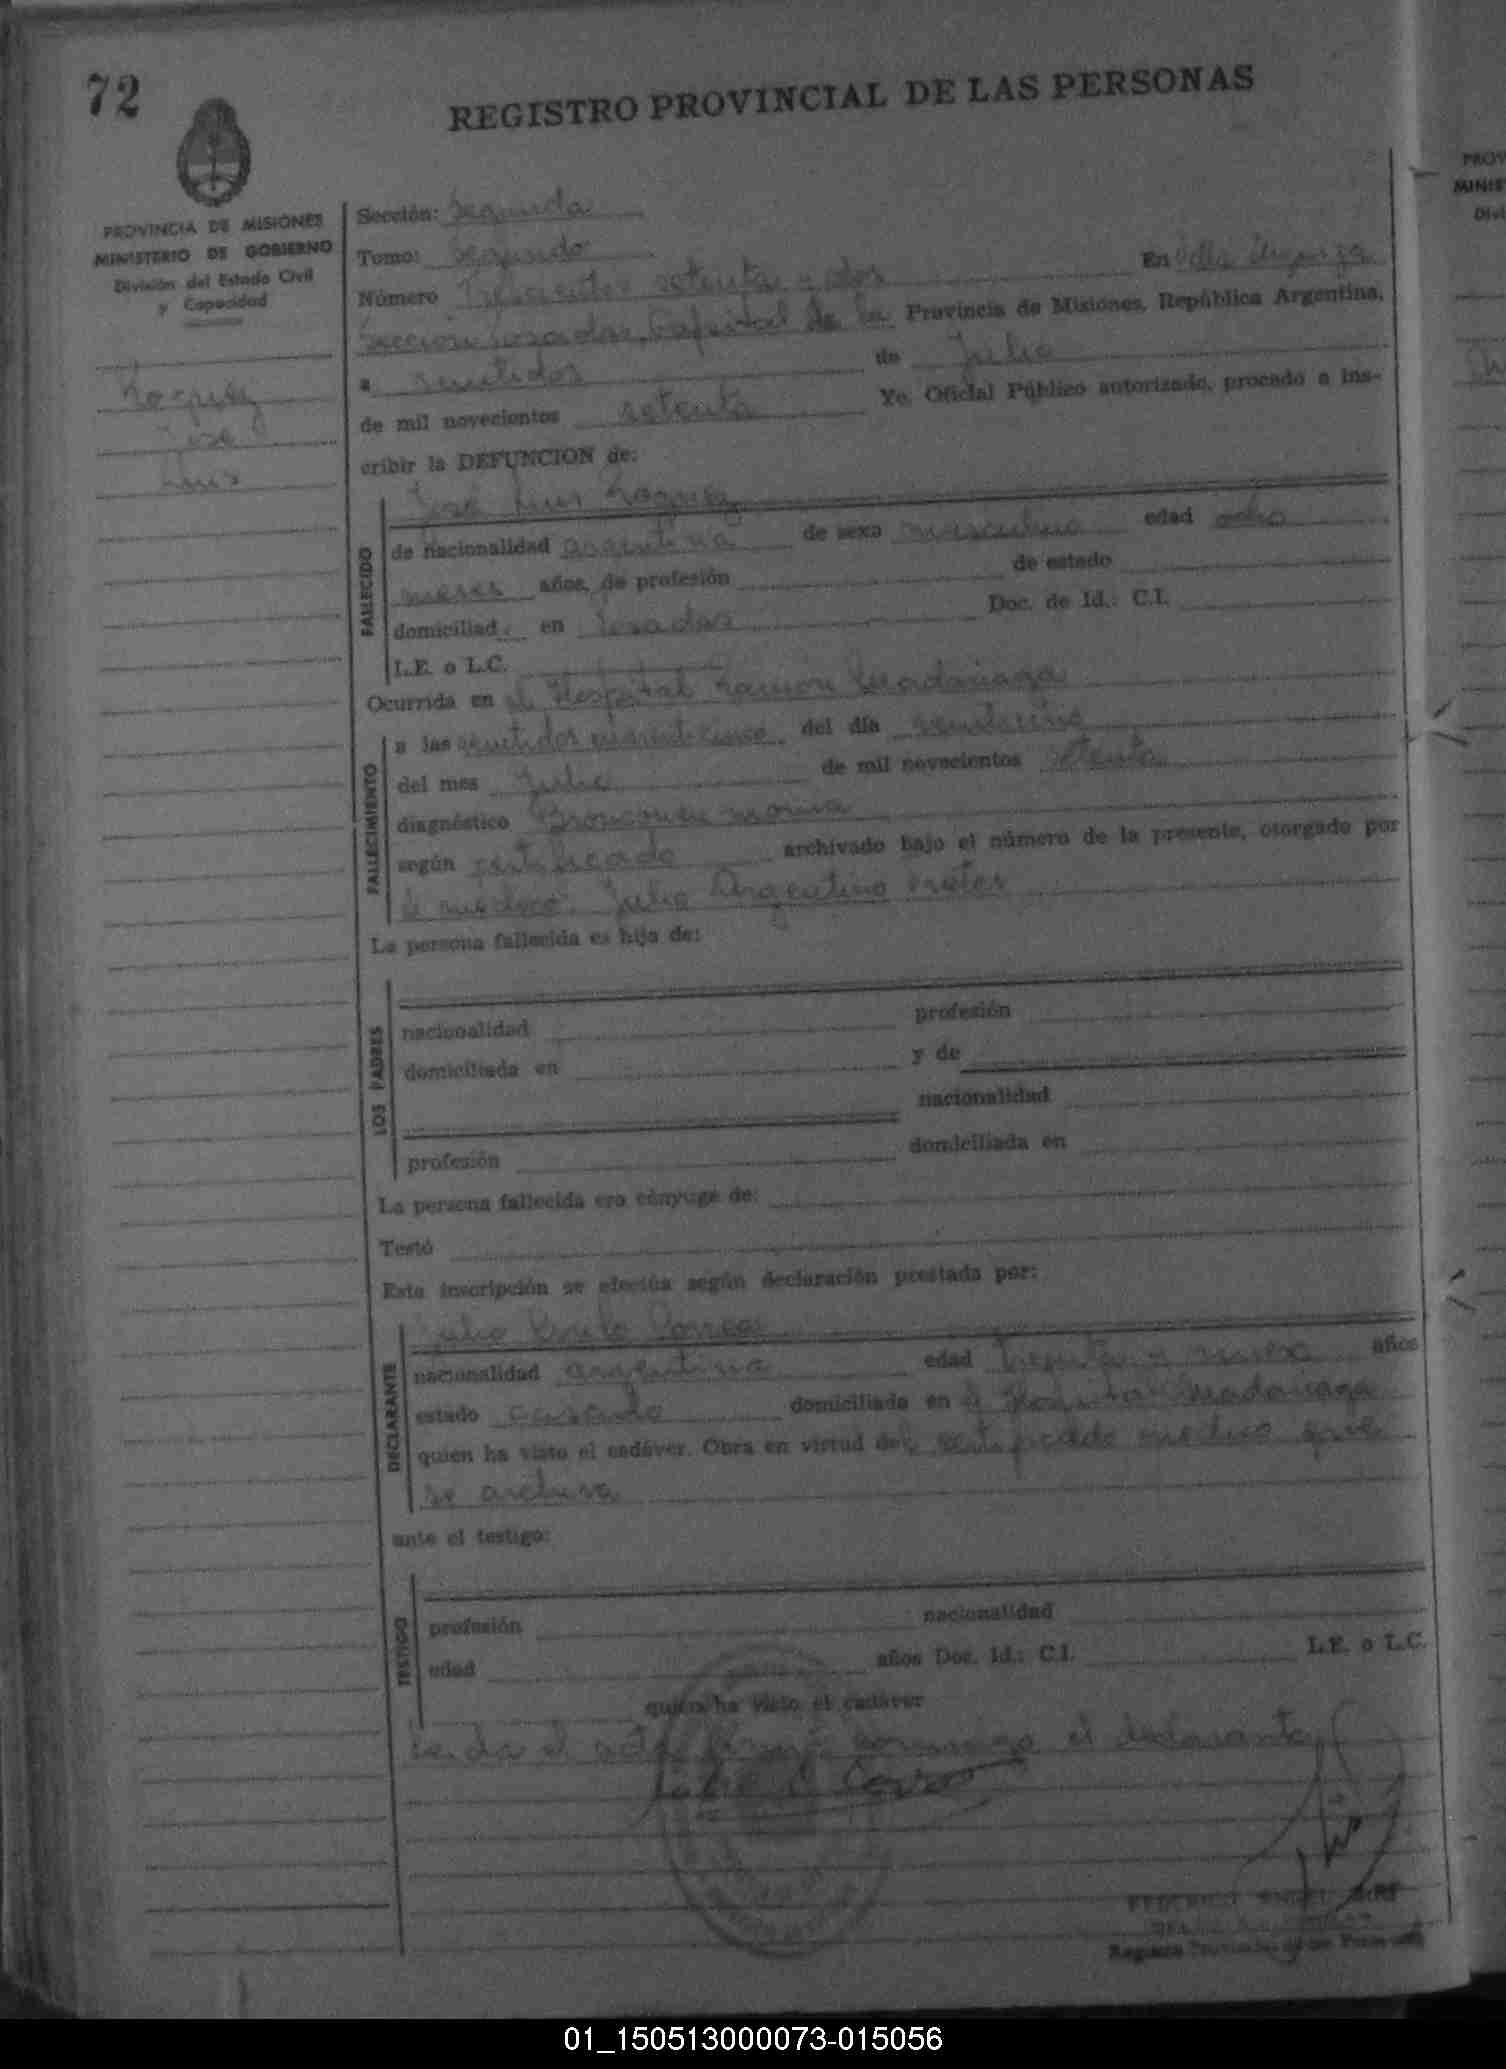 72
REGISTRO PROVINCIAL DE LAS PERSONAS
PROVINCIA DE MISIONES
MINISTERIO DE GOBIERNO
División del Estado Civil
y Capacidad
José
Luis
Sección: Segunda
Tomo: Segundo
Número Trescientos setenta y dos En Villa
Sección Posadas, Capital de la Provincia de Misiones, República Argentina,
a de Julio
de mil novecientos setenta Yo, Oficial Público autorizado, procedo a ins-
cribir la DEFUNCION de:
FALLECIDO
José Luis
de nacionalidad argentina de sexo masculino edad ocho
meses años, de profesión de estado
domiciliad en Posadas Doc. de Id.: C.I.
L.E. o L.C.
Ocurrida en el Hospital Ramón Madariaga
FALLECIMIENTO
a las veintidos cuarenticinco del día
del mes Julio de mil novecientos setenta
diagnóstico Bronconeumonia
según certificado archivado bajo el número de la presente, otorgado por
el médico: Julio Argentino
La persona fallecida es hija de:
LOS PADRES
nacionalidad profesión
domiciliada en y de
nacionalidad
profesión domiciliada en
La persona fallecida era cónyuge de:
Testó
Esta inscripción se efectúa según declaración prestada por:
DECLARANTE
Julio Correa
nacionalidad argentina edad treinta y nueve años
estado casado domiciliado en el Madariaga
quien ha visto el cadáver. Obra en virtud del certificado médico que
se archiva
ante el testigo:
TESTIGO
profesión nacionalidad
edad años Doc. Id.: C.I. L.E. o L.C.
quien ha visto el cadáver
Leida el acta firmó conmigo el declarante
FEDERICO ANGEL
Registro Provincial de las Personas
PROV
MINIS
Divi
01_150513000073-015056